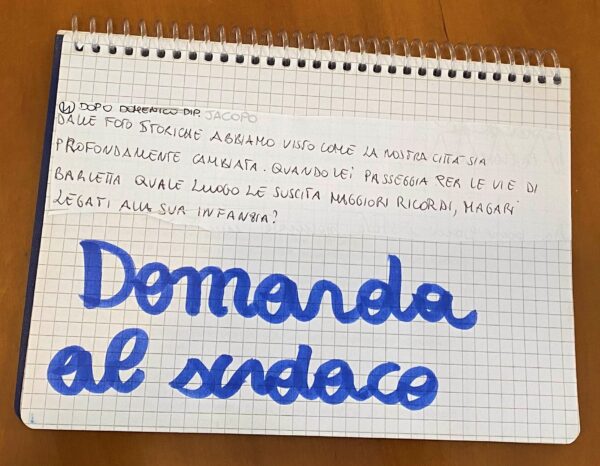 4) DOPO DOMENICO DIP. JACOPO
DALLE FOTO STORICHE ABBIAMO VISTO COME LA NOSTRA CITTÀ SIA
PROFONDAMENTE CAMBIATA. QUANDO LEI PASSEGGIA PER LE VIE DI
BARLETTA QUALE LUOGO LE SUSCITA MAGGIORI RICORDI, MAGARI
LEGATI ALLA SUA INFANZIA?
Domanda
al sindaco